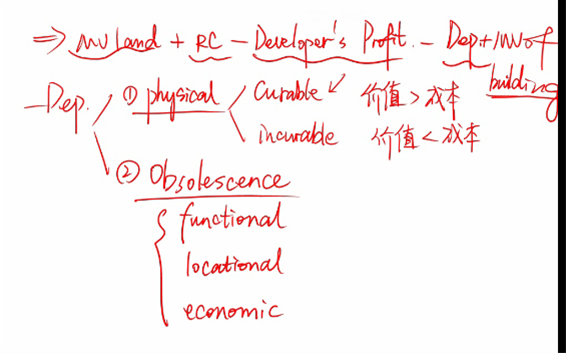 ⇒ MV land + RC - Developer's Profit. - Dep + INV of building
- Dep. ① physical curable 价值 > 成本
incurable 价值 < 成本
② Obsolescence
functional
locational
economic